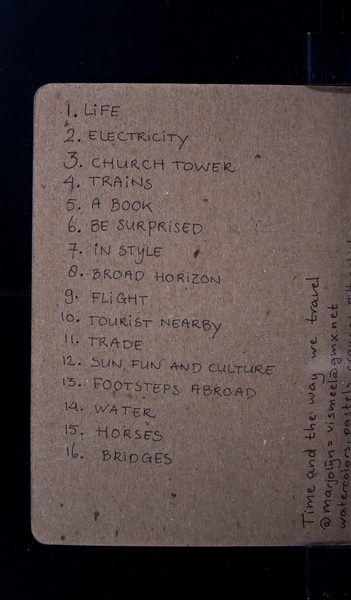 1. LIFE
2. ELECTRICITY
3. CHURCH TOWER
4. TRAINS
5. A BOOK
6. BE SURPRISED
7. IN STYLE
8. BROAD HORIZON
9. FLIGHT
10. TOURIST NEARBY
11. TRADE
12. SUN, FUN AND CULTURE
13. FOOTSTEPS ABROAD
14. WATER
15. HORSES
16. BRIDGES
Time and the way we travel
@marjolijn = vismeel@gmx.net
watercolors, pastels,